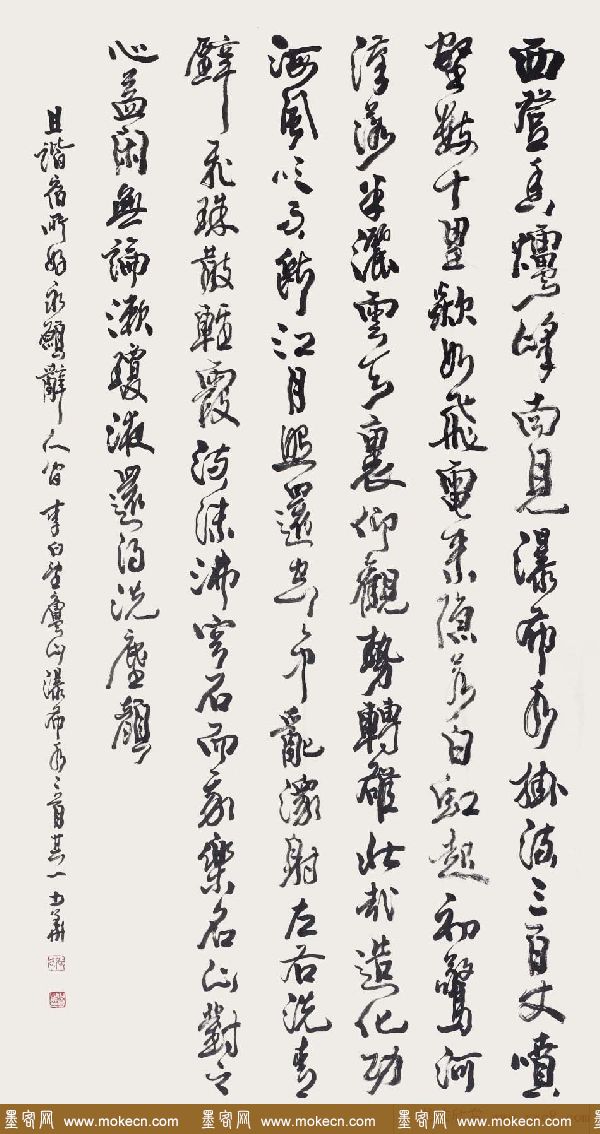 西登香爐峰南見瀑布水掛流三百丈噴
壑數十里欻如飛電來隱若白虹起初驚河
漢落半灑雲天裏仰觀勢轉雄壯哉造化功
海風吹不斷江月照還空々中亂潈射左右洗青
壁飛珠散輕霞流沫沸穹石而我樂名山對之
心益閑無論漱瓊液還得洗塵顏
且諧宿所好永願辭人間 李白望廬山瀑布水二首其一
墨客网 www.mokecn.com 墨客网 www.mokecn.com 墨客网 www.mokecn.com